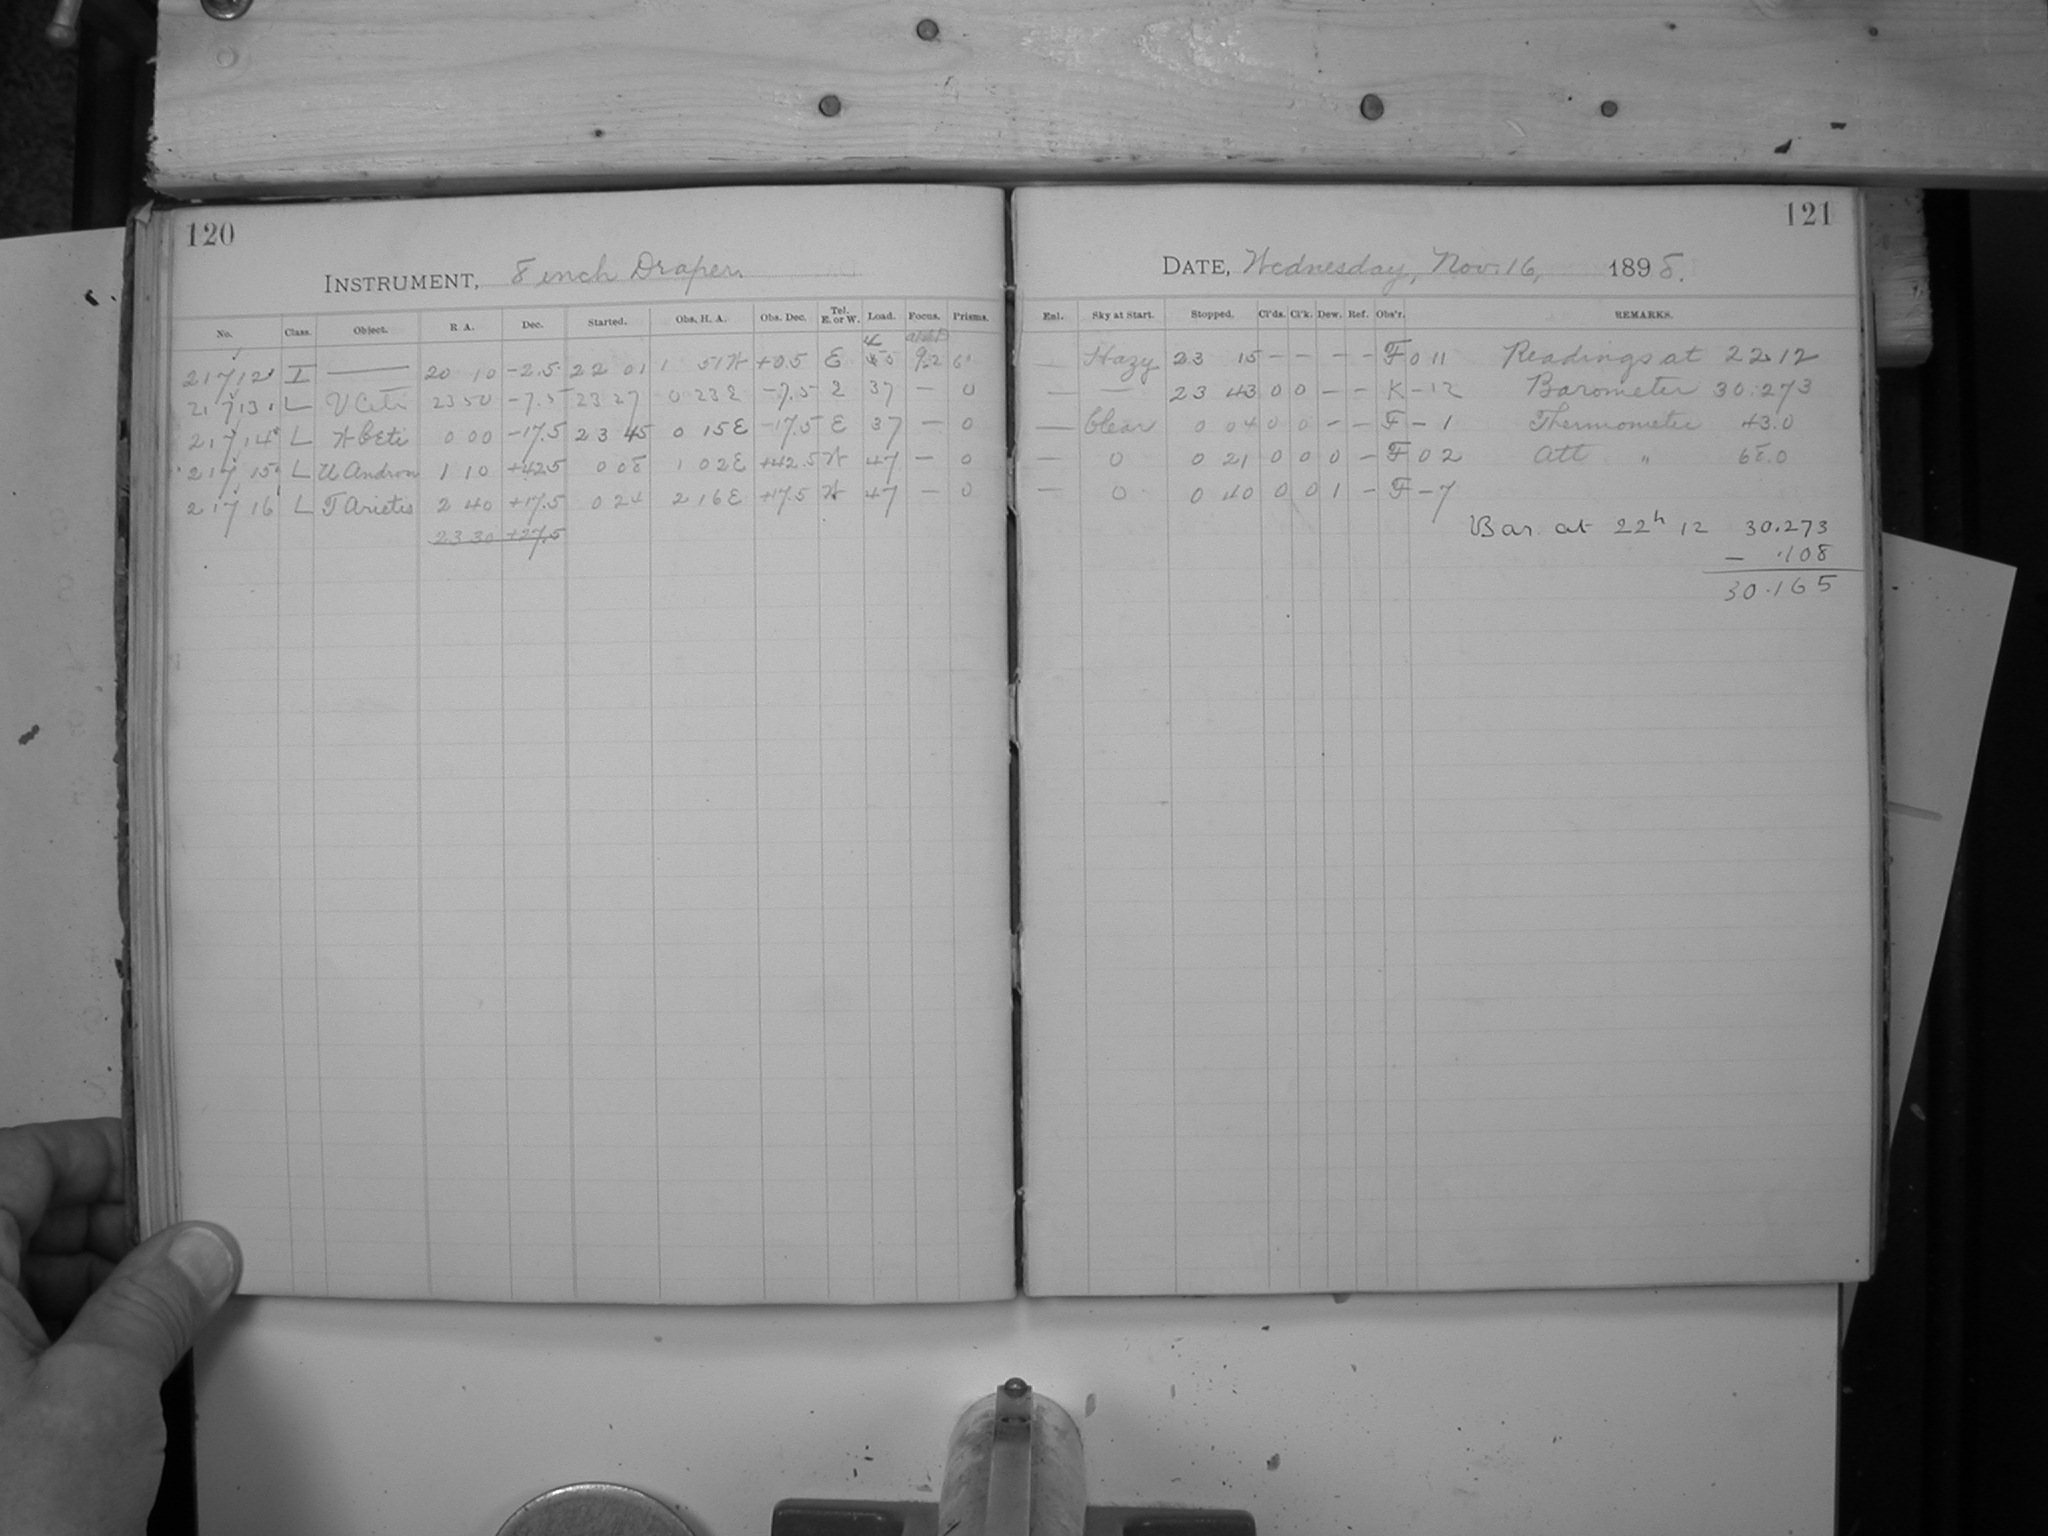 120
INSTRUMENT, 8 inch Draper.
No. Class. Object. R A. Dec. Started. Obs. H. A. Obs. Dec. Tel. E. or W. Load. Focus. Prisms.
21712 I — 20 10 -2.5 22 01 1 51 W +0.5 E 9.2
21713 L V Ceti 23 50 -7.5 23 27 0 23 E -7.5 E 37 — 0
21714 L W Ceti 0 00 -17.5 23 45 0 15 E -17.5 E 37 — 0
21715 L U Androm 1 10 +42.5 0 08 1 02 E +42.5 W 47 — 0
21716 L T Arietis 2 40 +17.5 0 24 2 16 E +17.5 W 47 — 0
23 30 +27.5
121
DATE, Wednesday, Nov. 16, 1898.
Enl. Sky at Start. Stopped. Cl'ds. Cl'k. Dew. Ref. Obs'r. REMARKS.
— Hazy 23 15 — — — — F 0 11 Readings at 22 12
— — 23 43 0 0 — — K — 12 Barometer 30.273
— Clear 0 04 0 0 — — F — 1 Thermometer 43.0
— 0 0 21 0 0 0 — F 0 2 Att " 68.0
— 0 0 40 0 0 1 — F — 7
Bar. at 22h 12 30.273
— .108
30.165